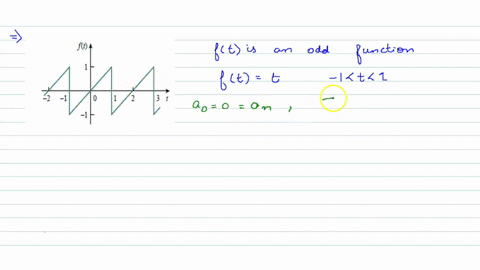 ⇒
f(t) is an odd function
f(t) = t -1 < t < 1
a₀ = 0 = aₙ ,
f(t)
1
-2 -1 0 1 2 3 t
-1